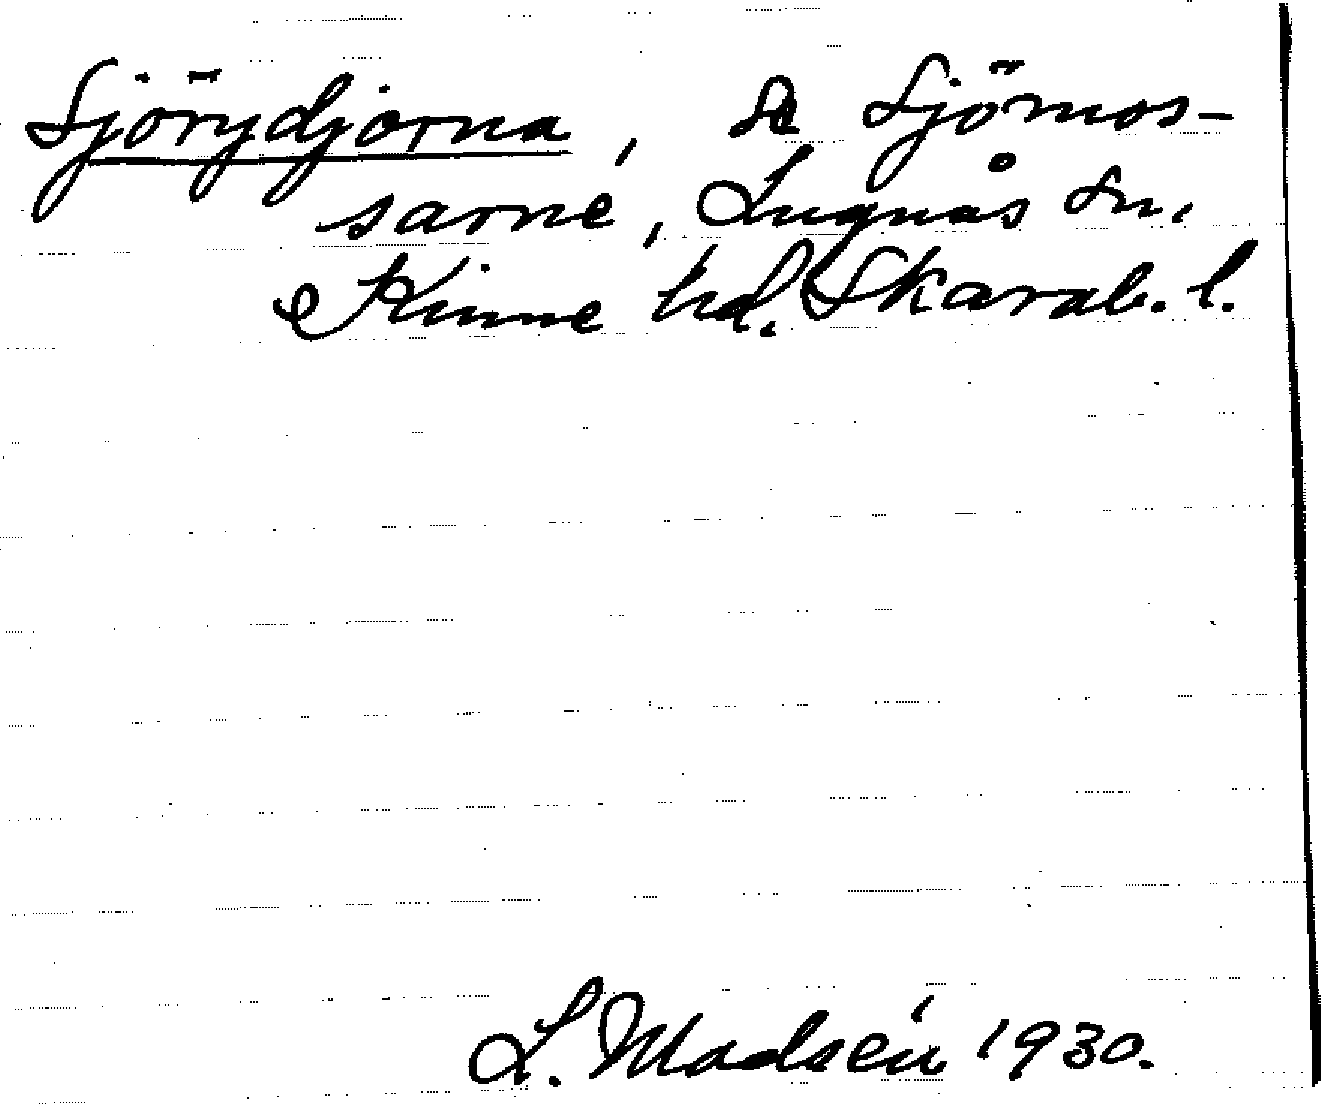 Sjörydjorna, se Sjömos-
sarne, Lugnås sn.
Kinne hd. Skarab. l.
L. Madsén 1930.